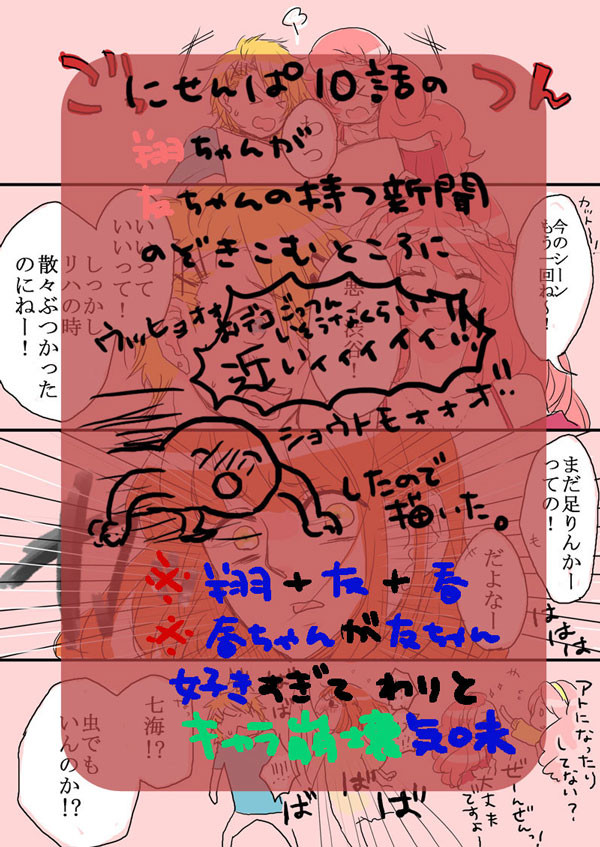 ごつん
にせんぱ10話の
翔ちゃんが
友ちゃんの持つ新聞
のぞきこむところに
ウッヒョオオ
おデコごっつん
しそうなくらいィ!!
近いィィィィィ!!
ショウトモォォオオ!!
したので
描いた。
※翔+友+春
※春ちゃんが友ちゃん
好きすぎてわりと
キャラ崩壊気味
カットー!
今のシーン
もう一回ね~!
悪い渋谷!
いいって
いいって!
しっかし
リハの時
散々ぶつかった
のにねー!
まだ足りんかー
っての!
だよなー
はははは
アトになったり
してない?
ぜーんぜんっ!
大丈夫
ですよー
七海!?
虫でも
いんのか!?
ばばばば